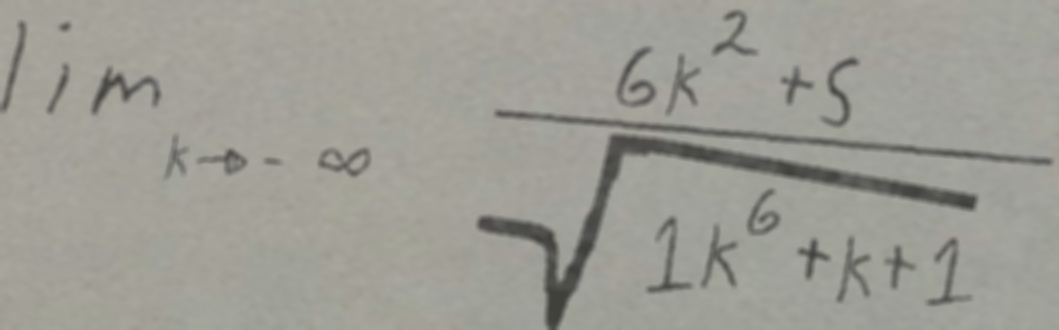 \lim_{k \to -\infty} \frac{6k^2+5}{\sqrt{1k^6+k+1}}